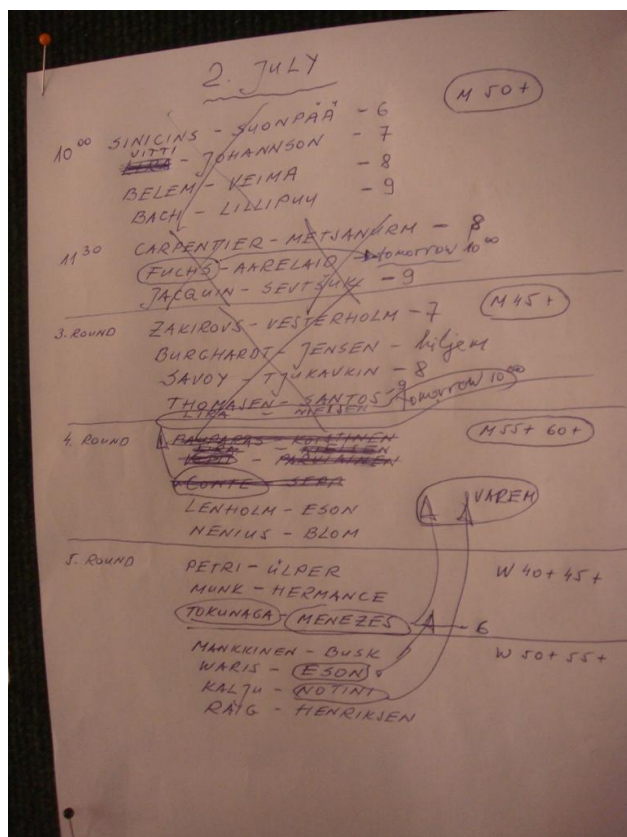 2. JULY
M 50+
10 00 SINICINS - SUONPÄÄ - 6
VITTI - JOHANNSON - 7
BELEM - VEIMA - 8
BACH - LILLIPUU - 9
11 30 CARPENTIER - METSANURM - 8
FUCHS - AARELAID tomorrow 10 00
JACQUIN - SEVTŠUK - 9
M 45+
3. ROUND ZAKIROVS - VESTERHOLM - 7
BURGHARDT - JENSEN - hiljem
SAVOY - TJUKAVKIN - 8
THOMASEN - SANTOS - 9 tomorrow 10 00
LIRA - NIELSEN
4. ROUND M 55+ 60+
CONTE - SEPP
LENHOLM - ESON
NENIUS - BLOM
VAREM
5. ROUND PETRI - ÜLPER W 40+ 45+
MUNK - HERMANCE
TOKUNAGA - MENEZES - 6
MANKKINEN - BUSK W 50+ 55+
WARIS - ESON
KALJU - NOTINI
RÄIG - HENRIKSEN